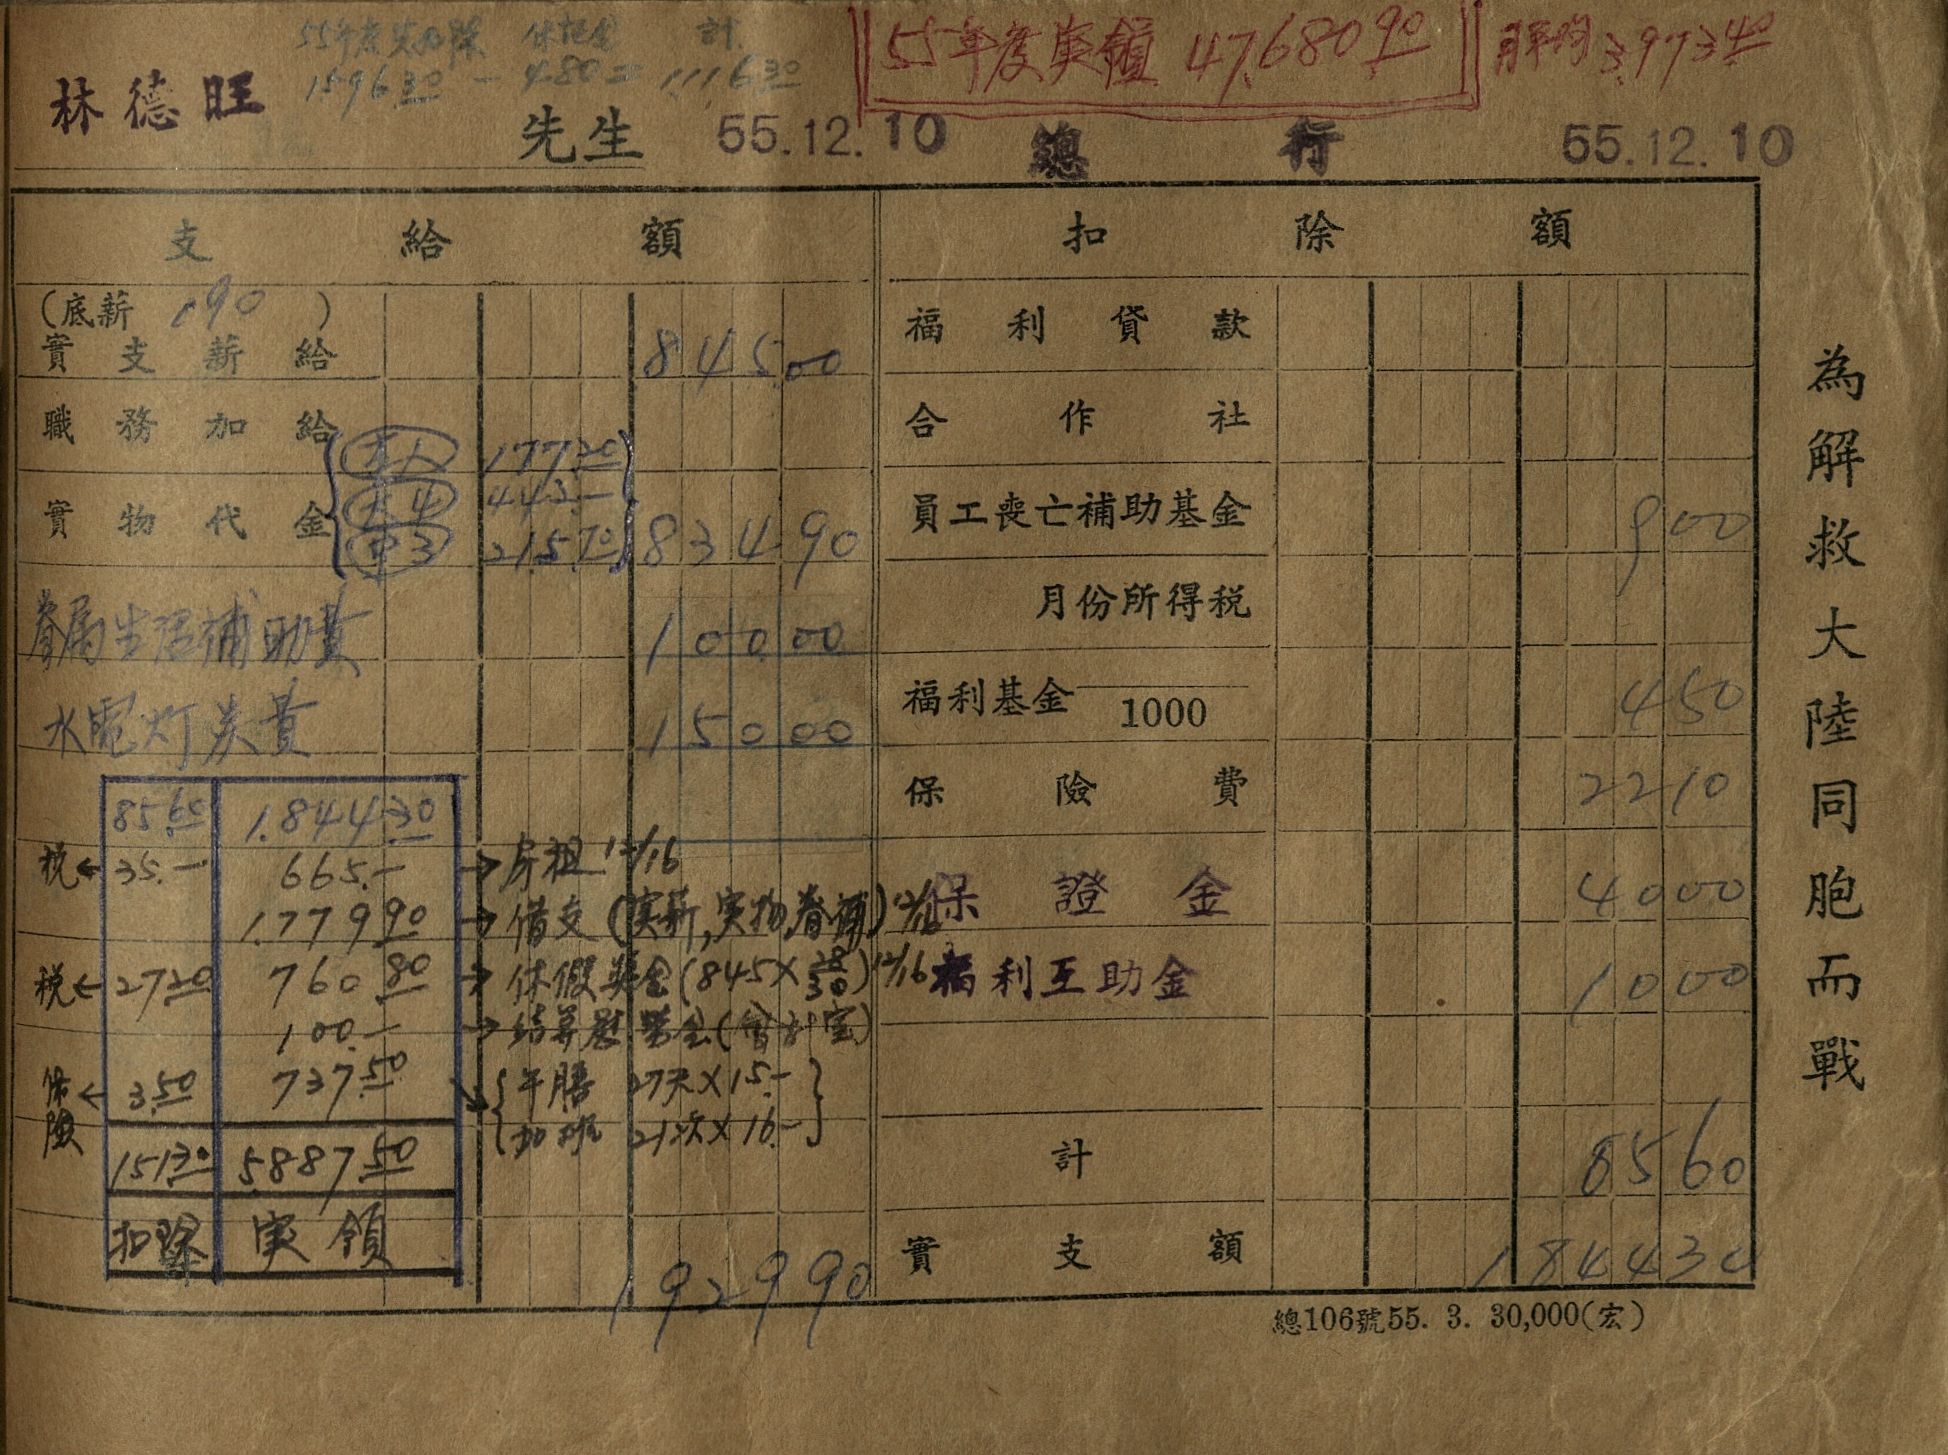 55年度実扣除 保証金 計
1,596.30 - 480 = 1,116.30
55年度実領 47,680.90
月平均 3,973.40
林德旺 先生 55.12.10 總行 55.12.10
支給額
(底薪 190 )
實支薪給 845 00
職務加給
本人 177.20
大4 442.-
中3 215.70
實物代金 834 90
眷屬生活補助費 100 00
水電灯炭費 150 00
85.60 1,844.30
税← 35.- 665.- →房租 12/16
1,779.90 →借支(実薪,実物,眷補) 12/16
税← 27.20 760.80 →休假奬金(845×28/30) 12/16
100.- →结算慰勞金(會計室)
保險← 3.50 737.50 →午膳 27天×15.-
加班 21次×16.-
151.30 5,887.50
扣除 実領
1929 90
扣除額
福利貸款
合作社
員工喪亡補助基金 9 00
月份所得税
福利基金 1000 4 50
保險費 22 10
保證金 40 00
福利互助金 10 00
計 85 60
實支額 1844 30
總106號55. 3. 30,000(宏)
為解救大陸同胞而戰